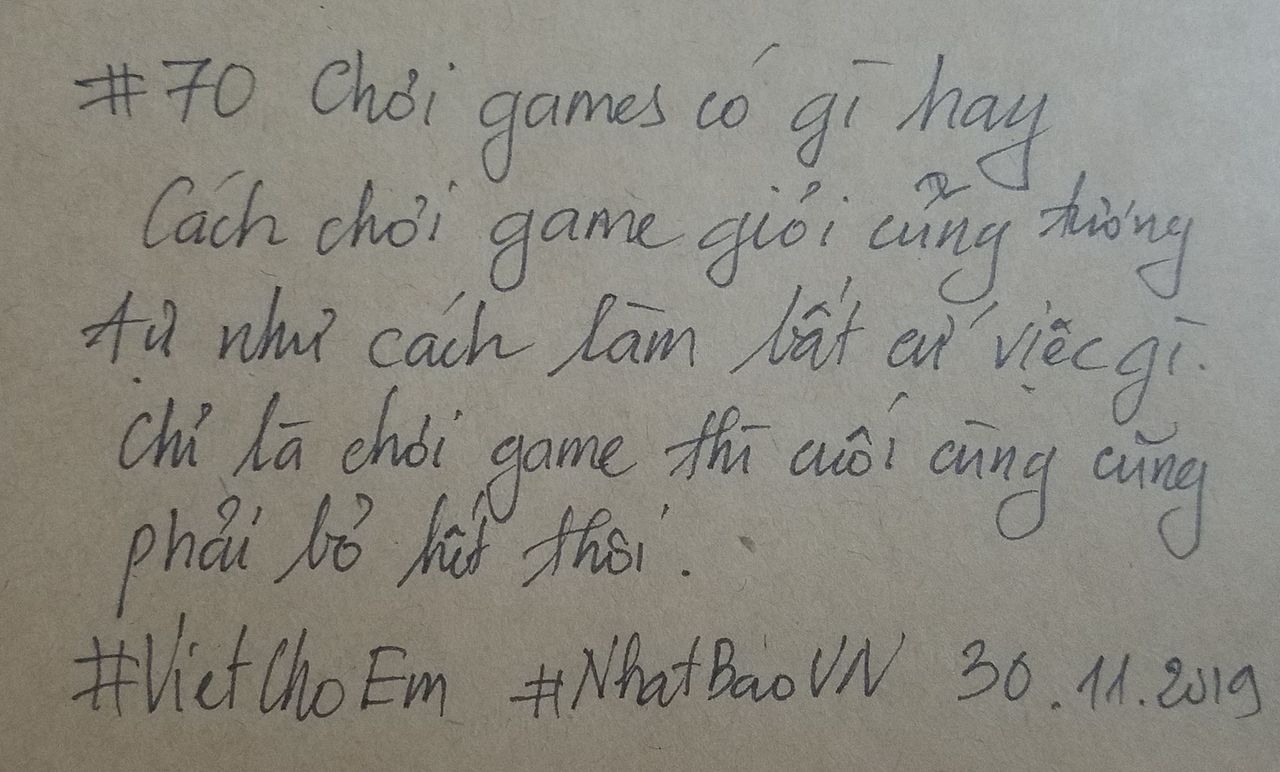 #70 Chơi games có gì hay
Cách chơi game giỏi cũng tương
tự như cách làm bất cứ việc gì.
Chỉ là chơi game thì cuối cùng cũng
phải bỏ hết thôi.
#VietChoEm #NhatBaoVN 30.11.2019